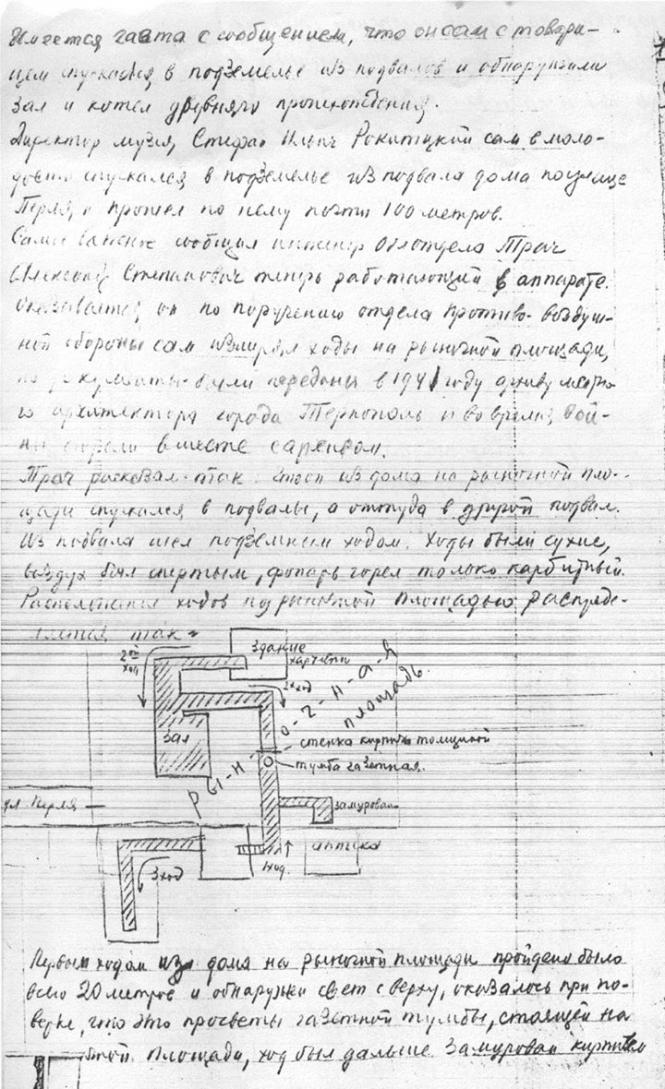 Имеется газета с сообщением, что он сам с товари-
щем спускался в подземелье из подвалов и обнаружили
зал и котел древняго происхождения.
Директор музея, Стефан Ильич Ракитицкий сам в моло-
дости спускался в подземелье из подвала дома по улице
Перля, и прошел по нему почти 100 метров.
сообщил инженер Облотдела Трач
Алексей Степанович теперь работающий в аппарате.
Оказывается, он по поручению отдела противо-воздуш-
ной обороны сам измерял ходы на рыночной площади,
но документы были переданы в 1941 году архиву
архитектора города Тернополь и во время вой-
ны сгорели вместе с архивом.
Трач рассказал так: из дома на рыночной пло-
щади спускался в подвалы, а оттуда в другой подвал.
Из подвала шел подземным ходом. Ходы были сухие,
воздух был спертым, фонарь горел только карбитный.
Расположение ходов под рыночной площадью распреде-
ляется так:
2ой ход
здание
харчевни
2 ход
зал
Ры-н-о-ч-н-а-я
площадь.
стенка кирпича толщиной
тумба газетная.
ул. Перля
замурован
аптека
1 ход.
3 ход
Первым ходом из дома на рыночной площади пройдено было
всего 20 метров и обнаружен свет сверху, оказалось при по-
верке, что это просветы газетной тумбы, стоящей на
площади, ход был дальше замурован кирпичо